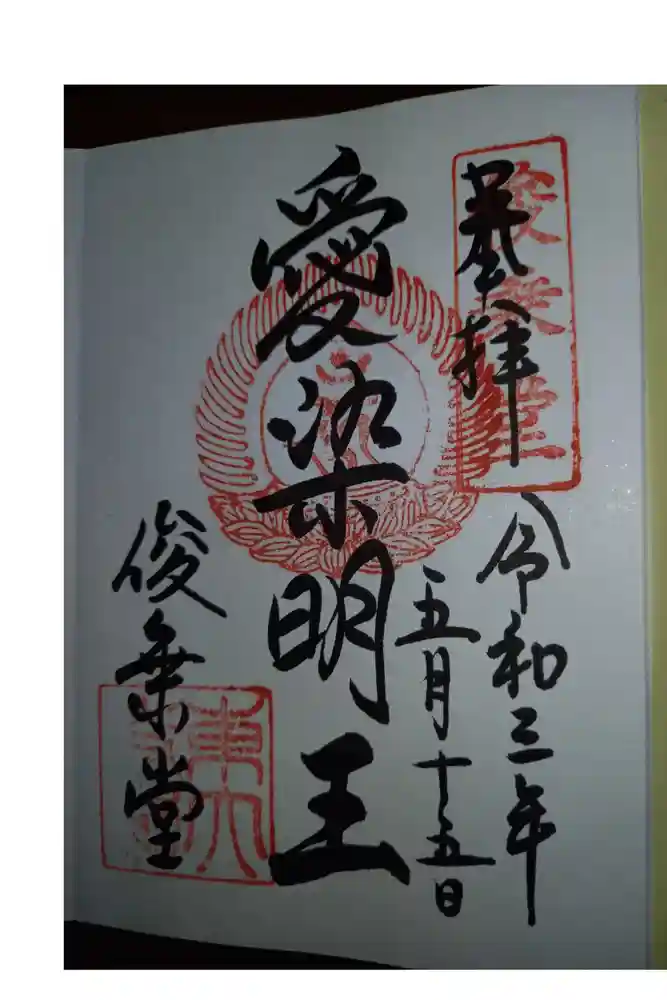 奉拝
俊乗堂
令和三年
五月十五日
愛染明王
俊乗堂